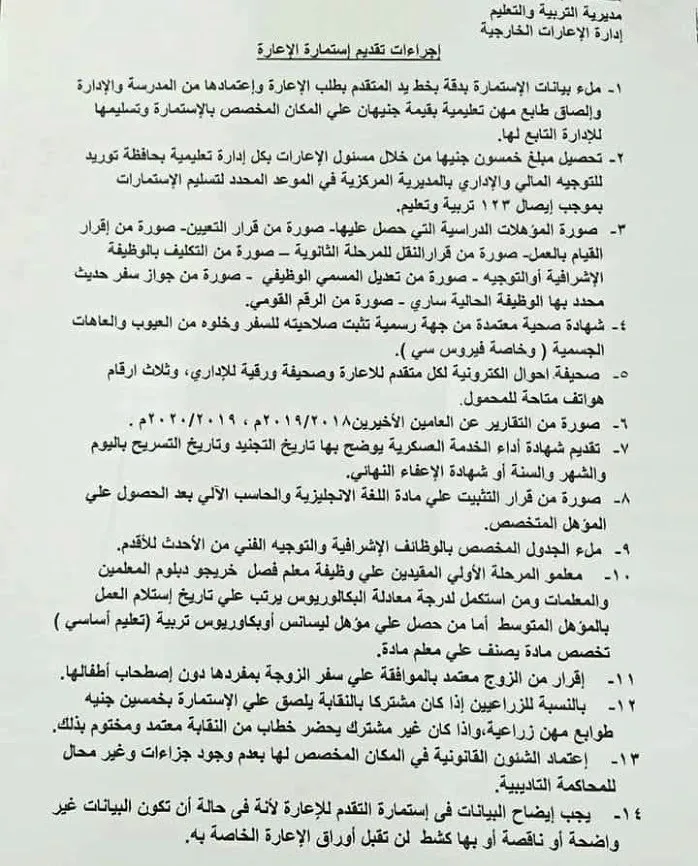 مديرية التربية والتعليم
إدارة الإعارات الخارجية
إجراءات تقديم إستمارة الإعارة
١- ملء بيانات الإستمارة بدقة بخط يد المتقدم بطلب الإعارة وإعتمادها من المدرسة والإدارة
وإلصاق طابع مهن تعليمية بقيمة جنيهان علي المكان المخصص بالإستمارة وتسليمها
للإدارة التابع لها.
٢- تحصيل مبلغ خمسون جنيها من خلال مسئول الإعارات بكل إدارة تعليمية بحافظة توريد
للتوجيه المالي والإداري بالمديرية المركزية في الموعد المحدد لتسليم الإستمارات
بموجب إيصال ١٢٣ تربية وتعليم.
٣- صورة المؤهلات الدراسية التي حصل عليها- صورة من قرار التعيين- صورة من إقرار
القيام بالعمل- صورة من قرارالنقل للمرحلة الثانوية – صورة من التكليف بالوظيفة
الإشرافية أوالتوجيه - صورة من تعديل المسمي الوظيفي - صورة من جواز سفر حديث
محدد بها الوظيفة الحالية ساري - صورة من الرقم القومي.
٤- شهادة صحية معتمدة من جهة رسمية تثبت صلاحيته للسفر وخلوه من العيوب والعاهات
الجسمية ( وخاصة فيروس سي ).
٥- صحيفة احوال الكترونية لكل متقدم للاعارة وصحيفة ورقية للإداري، وثلاث ارقام
هواتف متاحة للمحمول.
٦- صورة من التقارير عن العامين الأخيرين٢٠١٩/٢٠١٨م ، ٢٠٢٠/٢٠١٩م .
٧- تقديم شهادة أداء الخدمة العسكرية يوضح بها تاريخ التجنيد وتاريخ التسريح باليوم
والشهر والسنة أو شهادة الإعفاء النهائي.
٨- صورة من قرار التثبيت علي مادة اللغة الانجليزية والحاسب الآلي بعد الحصول علي
المؤهل المتخصص.
٩- ملء الجدول المخصص بالوظائف الإشرافية والتوجيه الفني من الأحدث للأقدم.
١٠- معلمو المرحلة الأولي المقيدين علي وظيفة معلم فصل خريجو دبلوم المعلمين
والمعلمات ومن استكمل لدرجة معادلة البكالوريوس يرتب علي تاريخ إستلام العمل
بالمؤهل المتوسط أما من حصل علي مؤهل ليسانس أوبكاوريوس تربية (تعليم أساسي )
تخصص مادة يصنف علي معلم مادة.
١١- إقرار من الزوج معتمد بالموافقة علي سفر الزوجة بمفردها دون إصطحاب أطفالها.
١٢- بالنسبة للزراعيين إذا كان مشتركا بالنقابة يلصق علي الإستمارة بخمسين جنيه
طوابع مهن زراعية،واذا كان غير مشترك يحضر خطاب من النقابة معتمد ومختوم بذلك.
١٣- إعتماد الشئون القانونية في المكان المخصص لها بعدم وجود جزاءات وغير محال
للمحاكمة التاديبية.
١٤- يجب إيضاح البيانات فى إستمارة التقدم للإعارة لأنة فى حالة أن تكون البيانات غير
واضحة أو ناقصة أو بها كشط لن تقبل أوراق الإعارة الخاصة به.